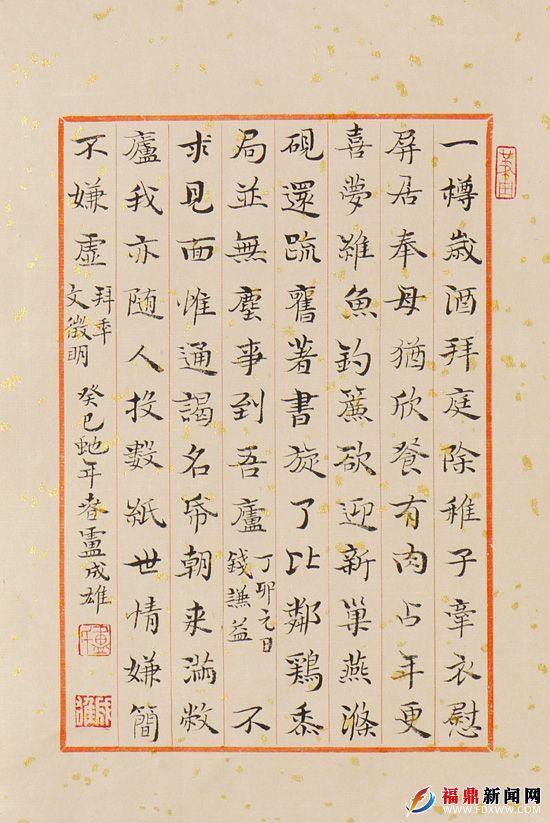 一樽歲酒拜庭除稚子牽衣慰
屏居奉母猶欣餐有肉占年更
喜夢維魚鈎簾欲迎新巢燕滌
硯還疏舊著書旋了比鄰鷄黍
局並無塵事到吾廬
丁卯元日
錢謙益
不
求見面惟通謁名帋朝来滿敝
廬我亦随人投數紙世情嫌簡
不嫌虛
拜年
文徵明
癸巳虵年春盧成雄
福鼎新闻网
WWW.FDXWW.COM